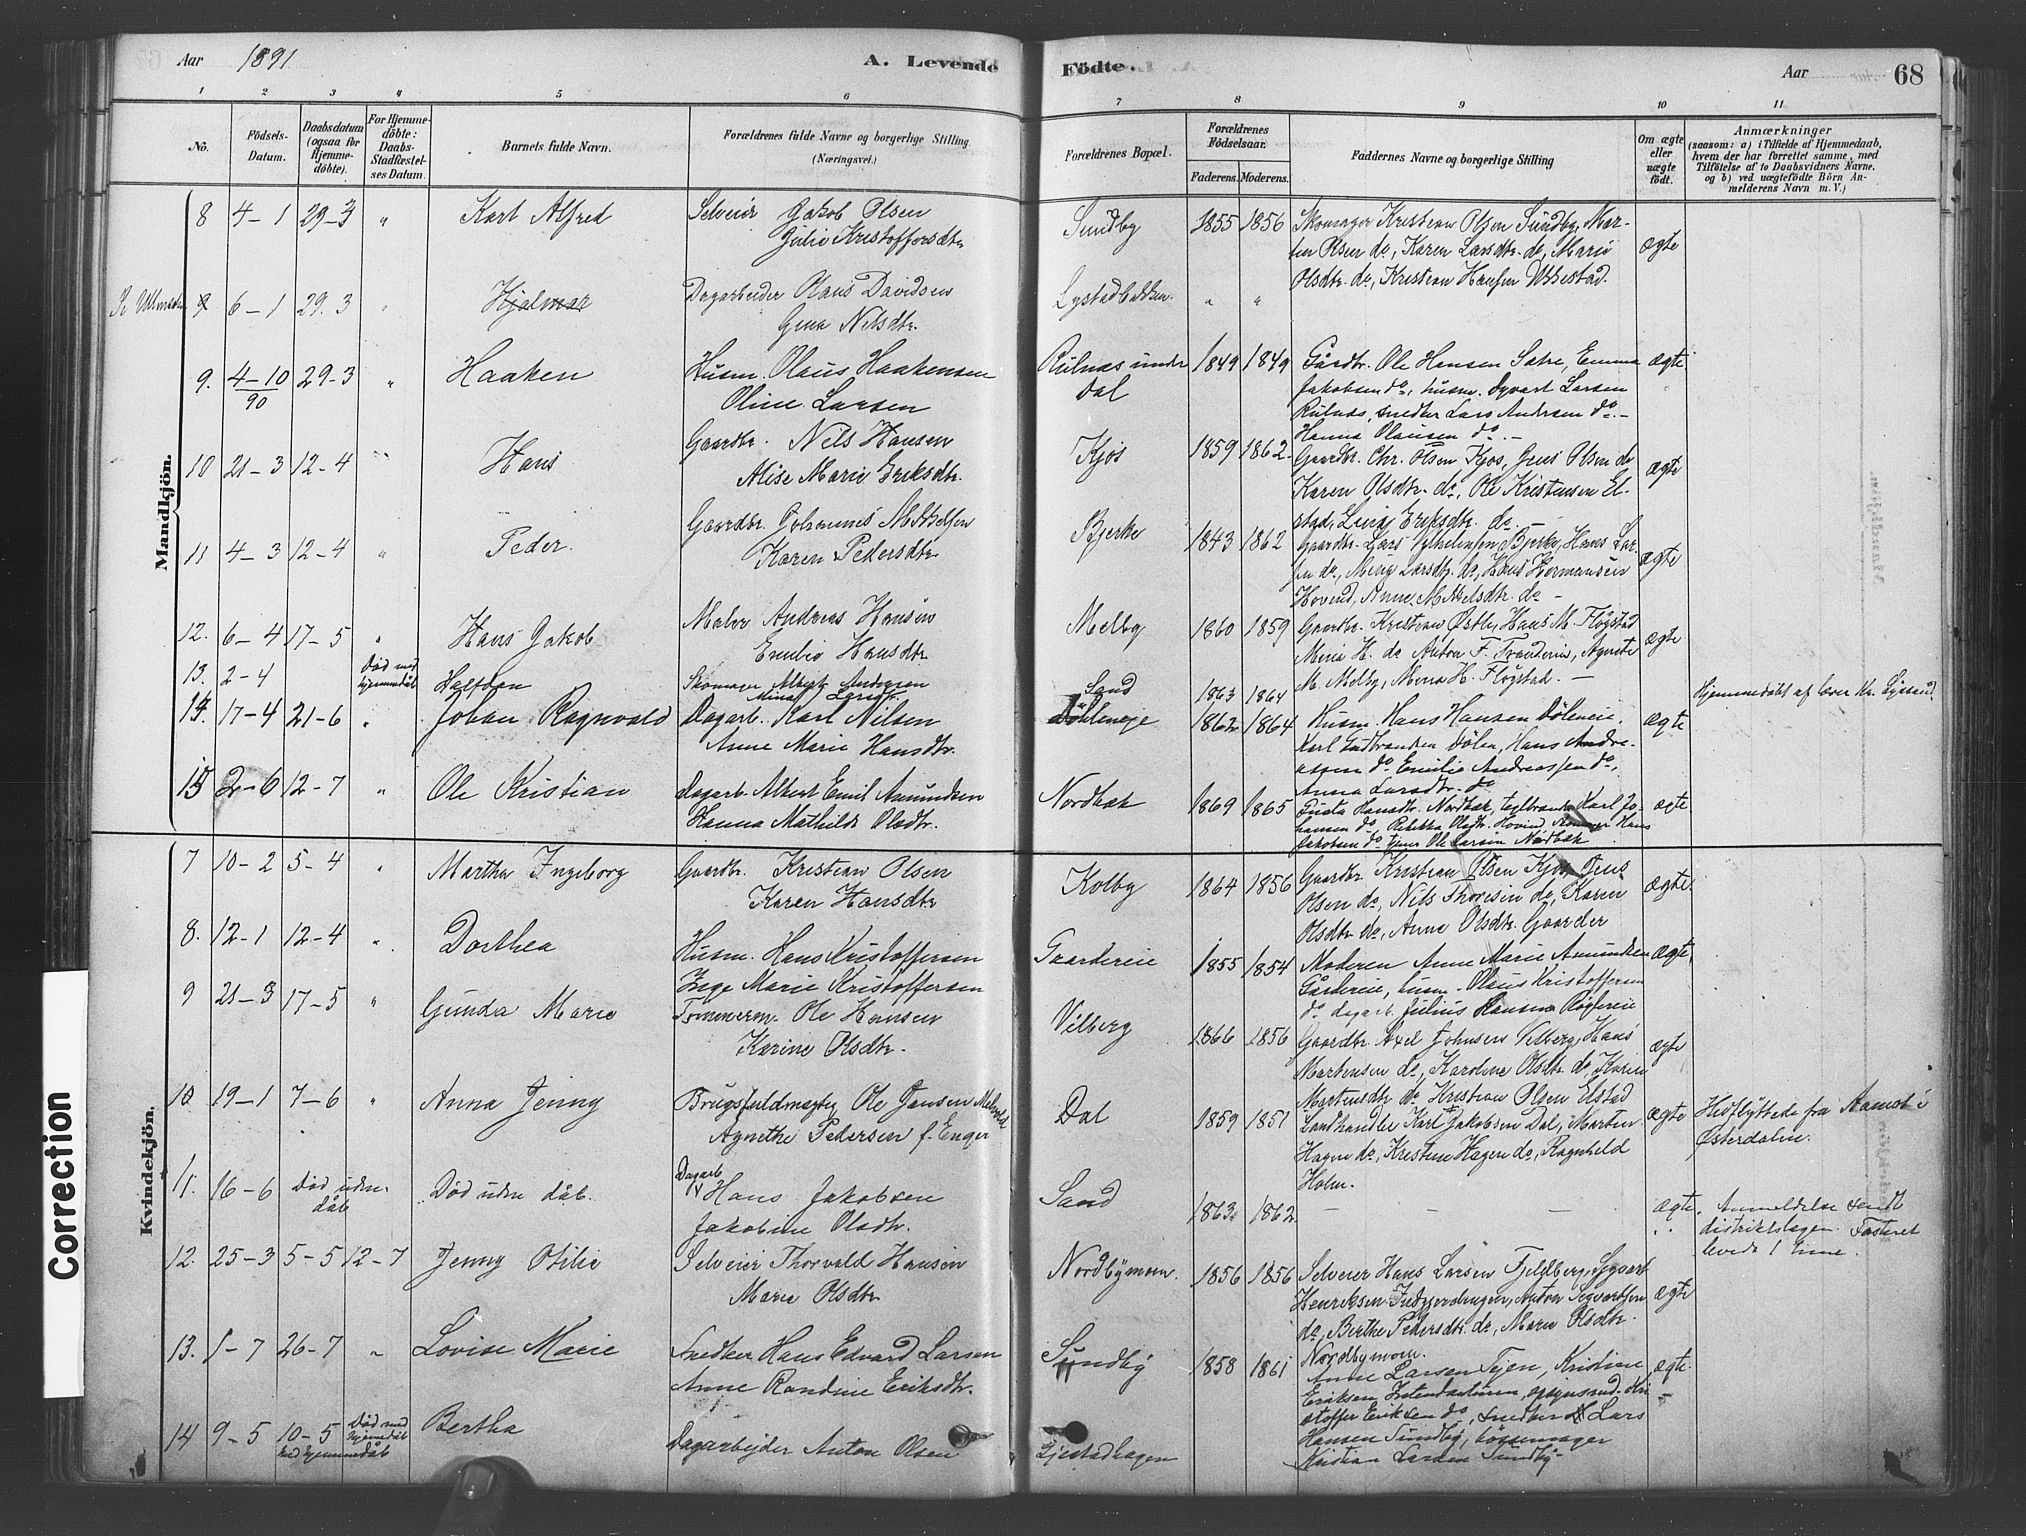 Aar 1891
A. Levende
Födte.
Aar
68
1 2 3 4 5 6
7 8 9 10 11
No.
Födsels-
Datum.
Daabsdatum
(ogsaa for
Hjemme-
döbte).
For Hjemme-
döbte:
Daabs-
Stadfæstel-
ses Datum.
Barnets fulde Navn.
Forældrenes fulde Navne og borgerlige Stilling
(Næringsvei.)
Forældrenes Bopæl.
Forældrenes
Födselsaar.
Faderens. Moderens.
Faddernes Navne og borgerlige Stilling
Om ægte
eller
uægte
födt.
Anmærkninger
(saasom: a) i Tilfælde af Hjemmedaab,
hvem der har forrettet samme, med
Tilföielse af to Daabsvidners Navne,
og b) ved uægtefödte Börn An-
melderens Navn m. V.)
Mandkjön.
8 4-1 29-3 " Karl Alfred Selveier Jakob Olsen
Julie Kristoffersdtr
Sundby 1855 1856 Skomager Kristian Olsen Sundby, Mar-
tin Olsen do, Karen Larsdtr. do, Marie
Olsdtr. do, Kristian Hansen Ubbestad.
ægte
6-1 29.3 " Hjalmar Dagarbeider Olaus Davidsen
Gina Nilsdtr.
Lystadbakken. " "
9. 4-10 29-3 " Haaken Husm. Olaus Haakensen
90
Oline Larsen
Rulnas under
Dal
1849 1849 Gårdbr. Ole Hansen Satre, Emma
Jakobsen do, husm. Syvart Larsen
Rulnas, snedker Lars Andersen do. -
Hanna Olausen do. -
ægte
10 21-3 12-4 " Hans Gaardbr. Nils Hansen
Alise Marie Eriksdtr.
Kjos 1859 1862. Gaardbr. Chr. Olsen Kjos, Jens Olsen do
Karen Olsdtr. do, Ole Kristensen El-
stad, Lina Eriksdtr. do -
ægte
11 4-3 12-4 " Peder. Gaardbr. Johannes Mikkelsen
Karen Pedersdtr
Bjerke 1843 1862 Gaardbr. Lars Vilhelmsen Bjerke, Hans Lar-
sen do, Larsdtr. do, Hans Hermansen
Hovind, Anne Mikkelsdtr. do -
ægte
12. 6-4 17-5 " Hans Jakob Maler Andreas Hansen
Emilie Hansdtr
Melby 1860 1859 Gaardbr. Kristian Østby, Hans M. Fløgstad
H. do Anton F. Agnete
M. Melby, H. Fløgstad. -
ægte
13. 2-4 Død med
hjemmedåb
Halfdan Skomager Albert Andersen
Larsdtr.
Sand 1863 1864
Hjemmedøbt af lærer Kr. Lystad
14. 17-4 21-6 " Johan Ragnvald Dagarb. Karl Nilsen
Anne Marie Hansdtr.
Døleneje 1862 1864 Husm. Hans Hansen Døleneie.
Karl Gudbrandsen Dølen, Hans Andre-
assen do Emilie Andreassen do,
Anna Larsdtr. do
ægte
15 2-6 12-7 " Ole Kristian Dagarb. Albert Emil Amundsen
Hanna Mathilde Olsdtr.
Nordbak 1869 1865 Gusta Hansdtr. Nordbak, teglbrænder Karl Jo-
hansen do, Rebekka Olsdtr. Hovind Skomager Hans
Jakobsen do, tjener Ole Larsen Nordbak
ægte
Kvindekjön.
7 10-2 5-4 " Martha Ingeborg Gaardbr. Kristian Olsen
Karen Hansdtr
Kolby 1864 1856 Gaardbr Kristian Olsen Kjos, Jens
Olsen do, Nils Thoresen do, Karen
Olsdtr do, Anne Olsdtr. Gaarder
ægte.
8. 12-1 12-4 " Dorthea Husm. Hans Kristoffersen
Inge Marie Kristoffersen
Gaardereie 1855 1854 Moderen Anne Marie Amundsen
Gårdereie, husm. Olaus Kristoffersen
do, dagarb. Julius Hansen Røglereie
ægte.
9 21-3 17-5 " Gunda Marie Tømmerm. Ole Hansen
Karine Olsdtr.
Vilberg 1866 1856 Gaardbr Axel Johnsen Vilberg, Hans
Martensen do, Karoline Olsdtr. do, Karen
Martensdtr do Kristian Olsen Elstad
ægte
10. 19-1 7-6 " Anna Jenny Brugsfuldmægtig Ole Jansen
Agnethe Pedersen f. Enger
Dal 1859 1851 Landhandler Karl Jakobsen Dal, Marten
Hagen do, Kristine Hagen do, Ragnhild
Holm.
ægte
Hidflyttede fra Aamot i
Østerdalen.
11. 16-6 Død uden
dåb
Død uden dåb. Dagarb
Hans Jakobsen
Jakobine Olsdtr.
Sand 1863. 1862 - - -
ægte.
Anmeldelse sendt
distriktslægen. Fosteret
levede 1 time.
12. 25-3 5-5 12-7 Jenny Otilie Selveier Thorvald Hansen
Marie Olsdtr
Nordbymoen. 1856 1856 Selveier Hans Larsen Fjeldberg, Sygvart
Henriksen Indgjerdingen, Anton Sygvartsen
do, Berthe Pedersdtr. do, Marie Olsdtr.
Nordbymoen.
ægte
13. 1-7 26-7 " Lovise Marie Snedker Hans Edvard Larsen
Anne Randine Eriksdtr.
Sundby 1858 1861 Anne Larsen Tejen, Kristine
Eriksen Intendanturen, opsynsmd. Kri-
stoffer Eriksen do, snedker Lars
Hansen Sundby, bøssemager
Kristian Larsen Sundby -
ægte.
14 9-5 10-5
ved hjemmedåb
Død med
hjemmedåb
Bertha Dagarbejder Anton Olsen
Gjestadhagen
Correction